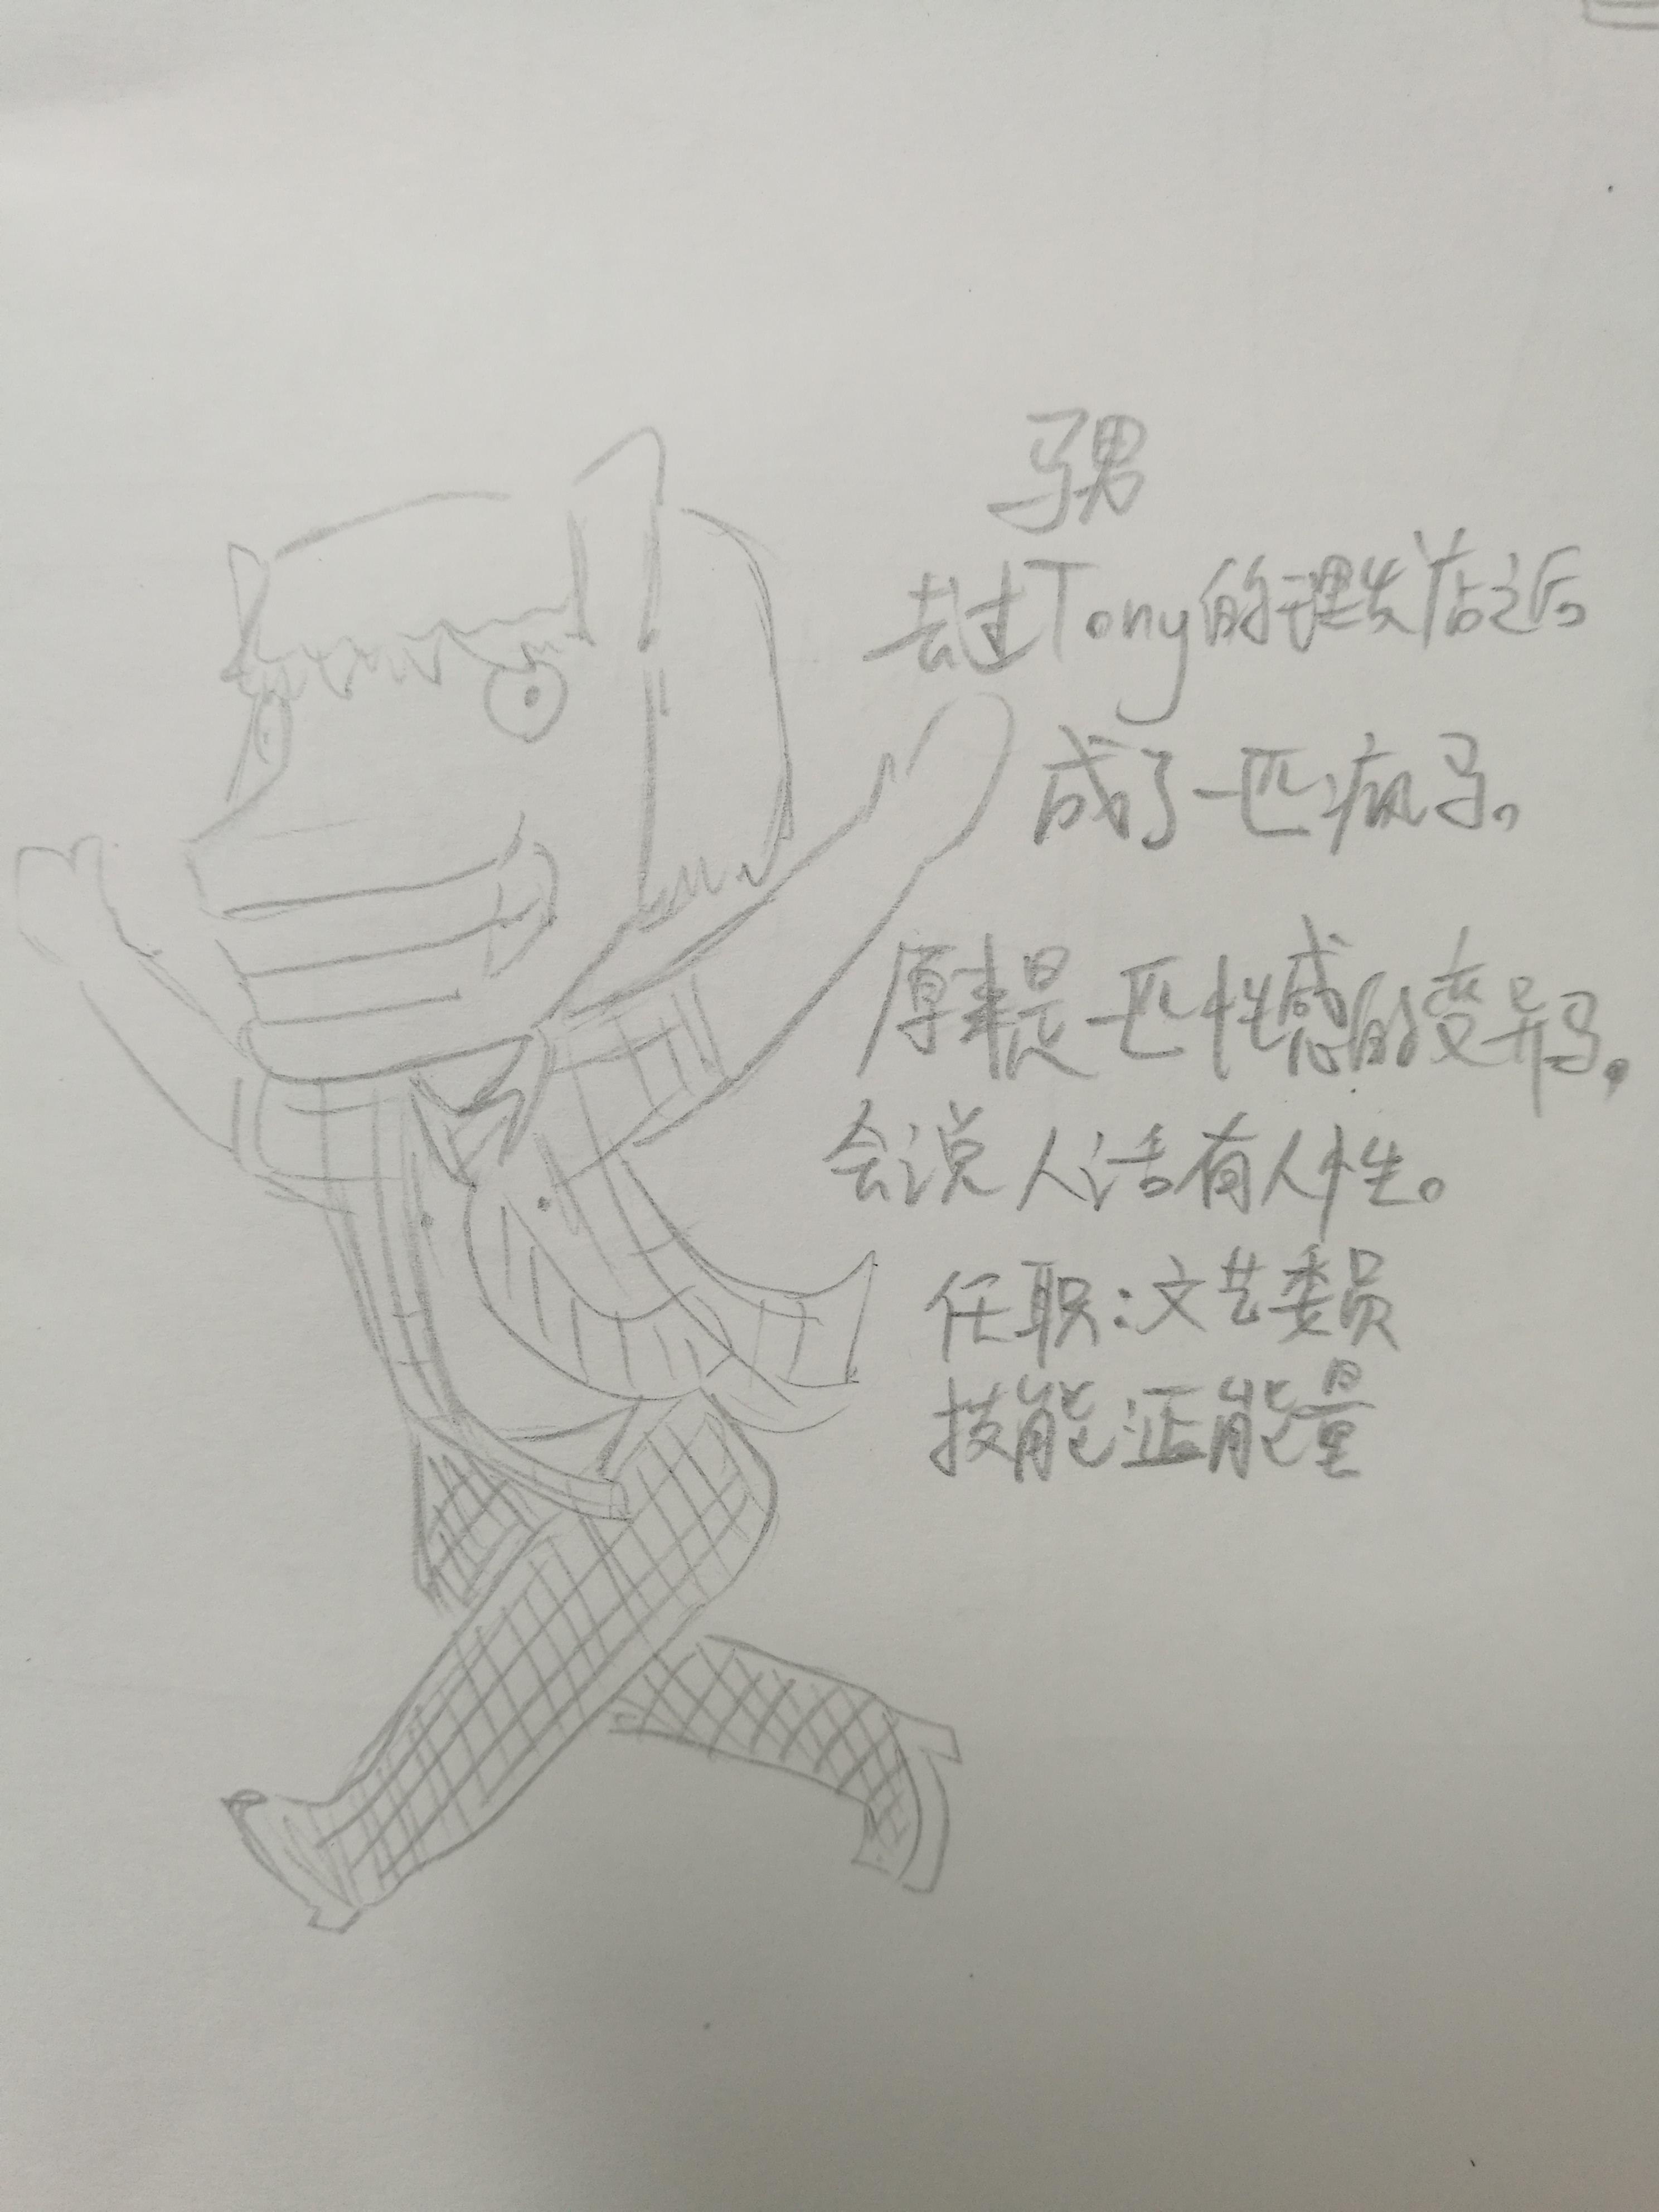 马男
去过Tony的理发店之后
成了一匹疯马。
原来是一匹性感的变异马。
会说人话有人性。
任职:文艺委员
技能:正能量